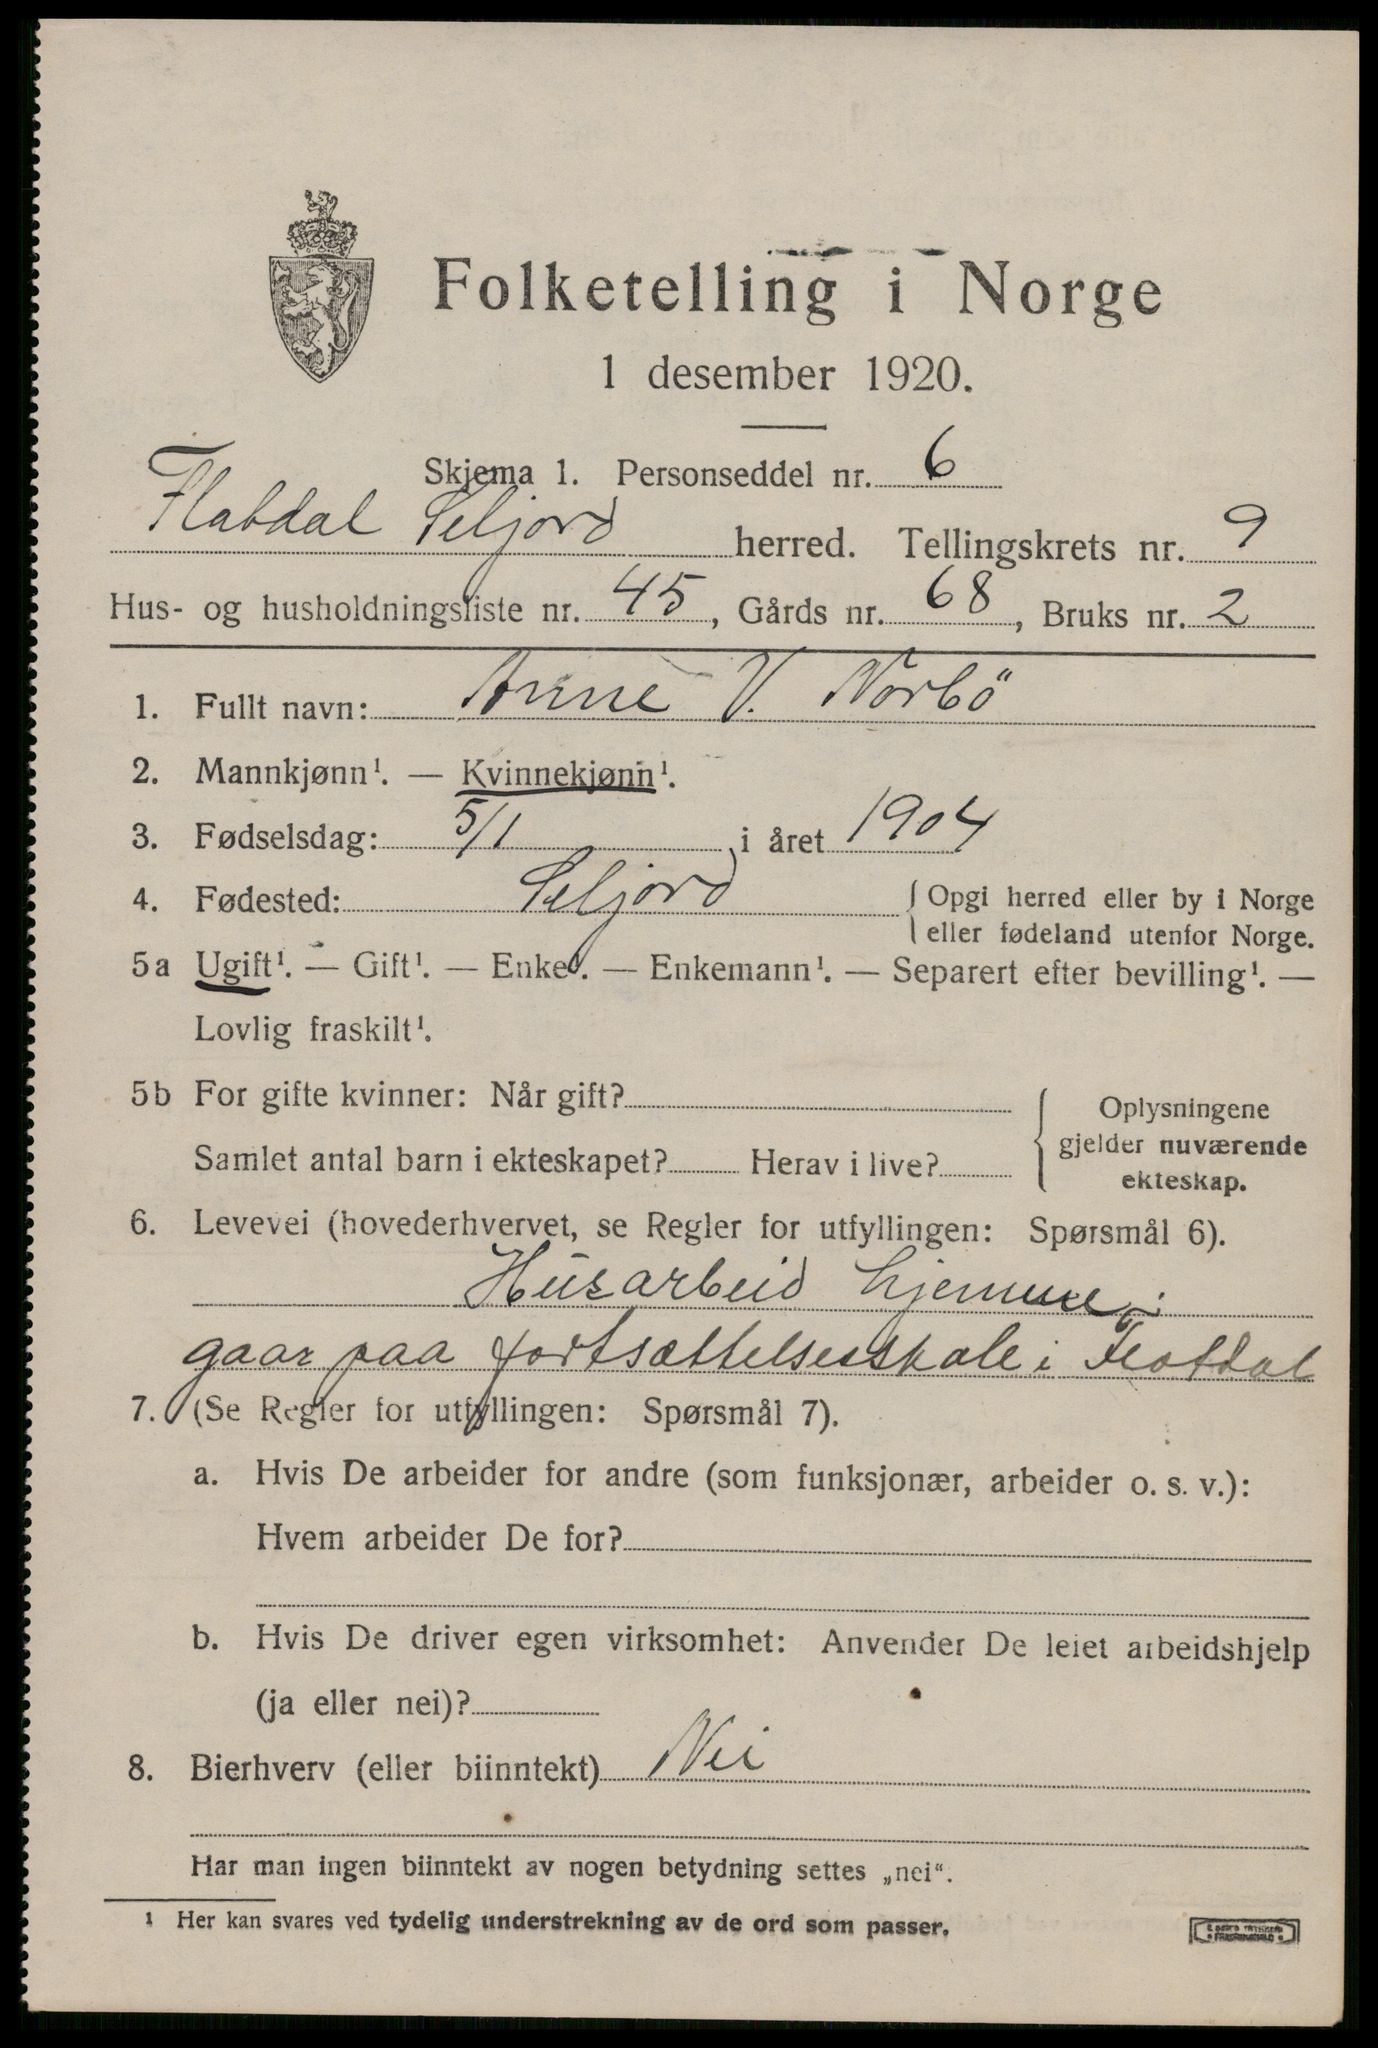 Folketelling i Norge
1 desember 1920.
Skjema 1. Personseddel nr. 6
Flatdal Seljord herred. Tellingskrets nr. 9
Hus- og husholdningsliste nr. 45, Gårds nr. 68, Bruks nr. 2
1. Fullt navn: Anne V. Norbö
2. Mannkjønn¹. — Kvinnekjønn¹.
3. Fødselsdag: 5/1 i året 1904
4. Fødested: Seljord { Opgi herred eller by i Norge
eller fødeland utenfor Norge.
5a Ugift¹. — Gift¹. — Enke¹. — Enkemann¹. — Separert efter bevilling¹. —
Lovlig fraskilt¹.
5b For gifte kvinner: Når gift?
Samlet antal barn i ekteskapet? Herav i live?
{ Oplysningene
gjelder nuværende
ekteskap.
6. Levevei (hovederhvervet, se Regler for utfyllingen: Spørsmål 6).
Husarbeid hjemme;
gaar paa fortsættelsesskole i Flatdal
7. (Se Regler for utfyllingen: Spørsmål 7).
a. Hvis De arbeider for andre (som funksjonær, arbeider o. s. v.):
Hvem arbeider De for?
b. Hvis De driver egen virksomhet: Anvender De leiet arbeidshjelp
(ja eller nei)?
8. Bierhverv (eller biinntekt) Nei
Har man ingen biinntekt av nogen betydning settes „nei“.
¹ Her kan svares ved tydelig understrekning av de ord som passer.